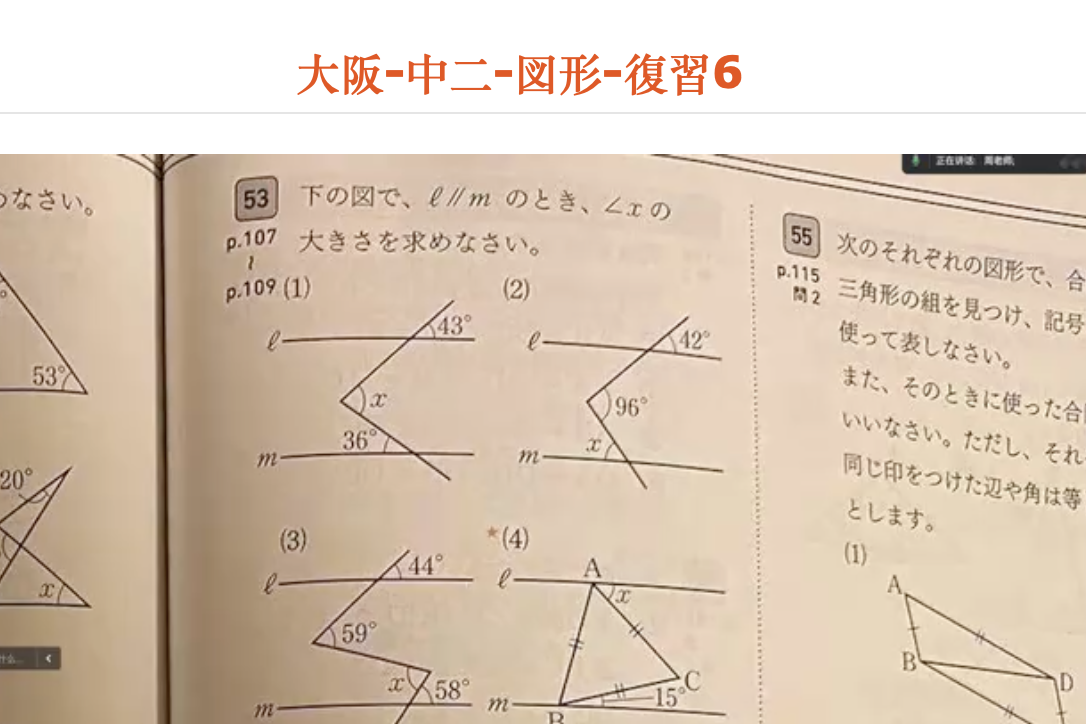 大阪-中二-図形-復習6
正在讲话: 周老师;
なさい。
53°
20°
x
53
下の図で、ℓ//m のとき、∠x の
p.107
大きさを求めなさい。
≀
p.109
(1)
ℓ
43°
x
36°
m
(2)
ℓ
42°
96°
x
m
(3)
ℓ
44°
59°
x
58°
m
★(4)
ℓ
A
x
C
15°
m
B
55
次のそれぞれの図形で、合
p.115
問2
三角形の組を見つけ、記号
使って表しなさい。
また、そのときに使った合
いいなさい。ただし、それ
同じ印をつけた辺や角は等
とします。
(1)
A
B
D